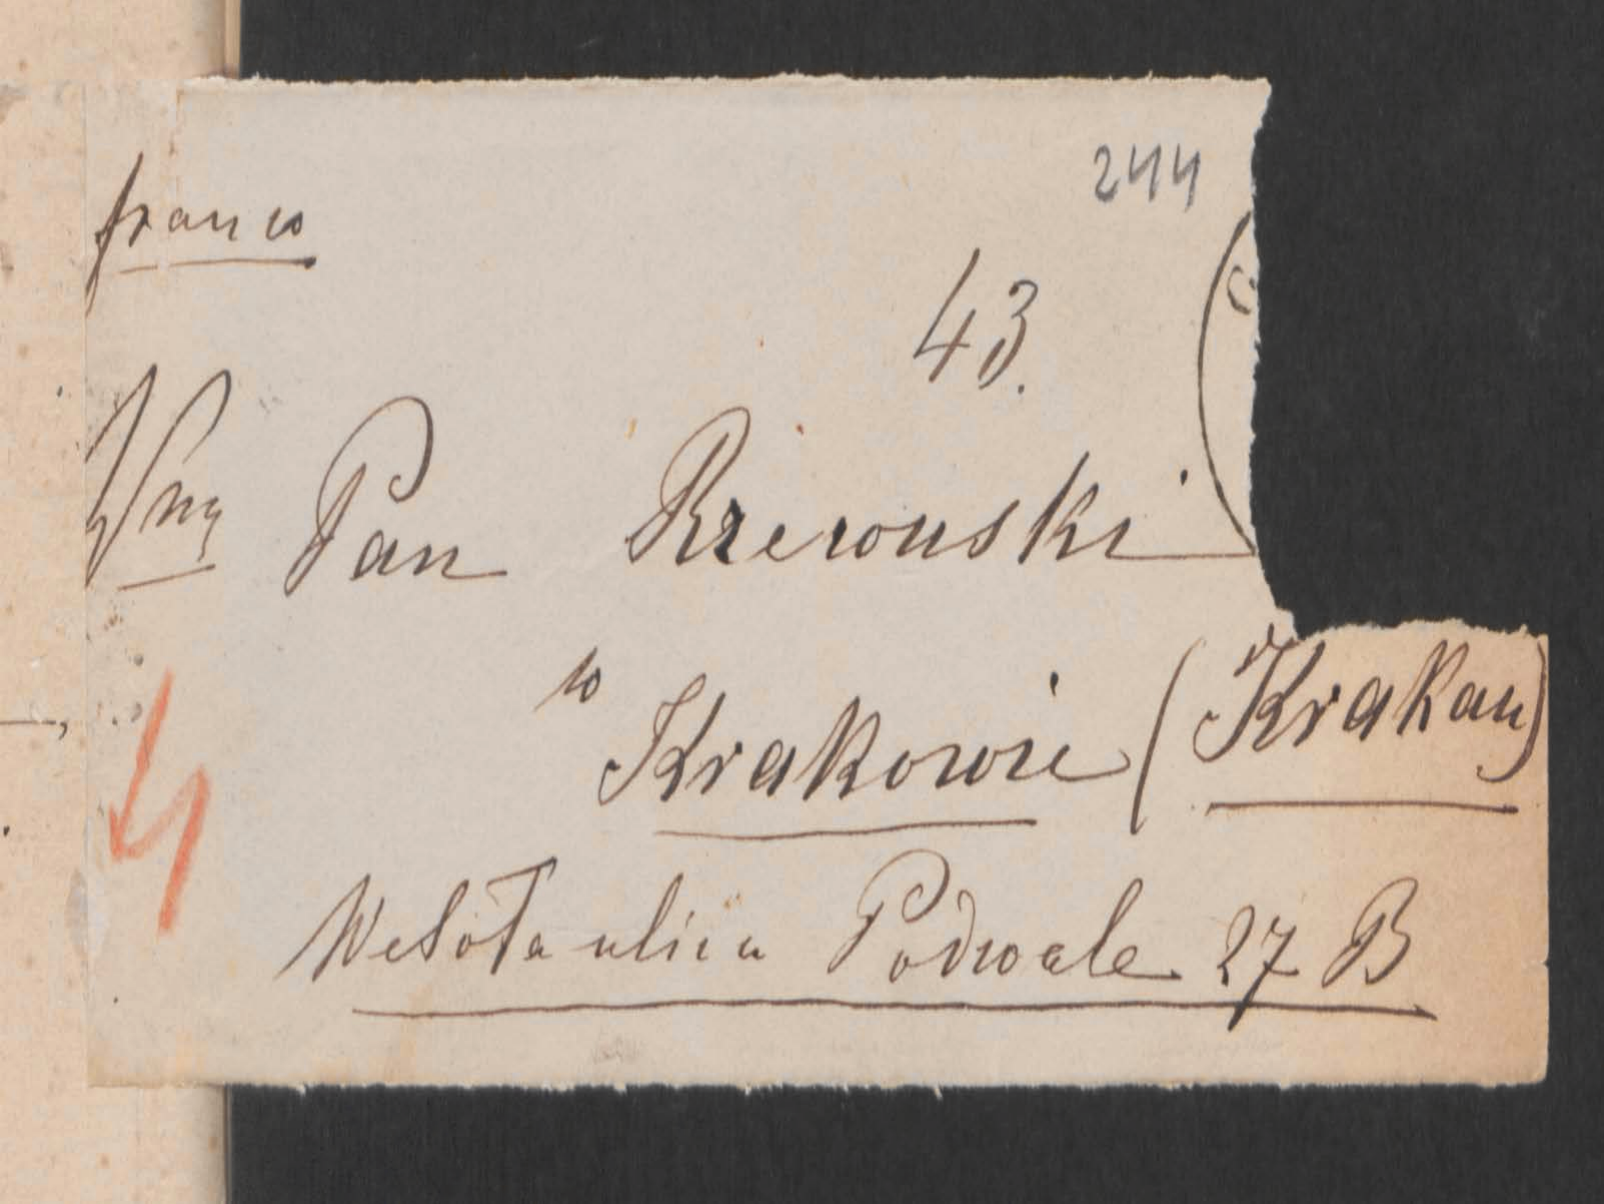 244
franco
43.
Wny Pan Rzewuski
w
Krakowie (Krakau)
Wesoła ulica Podwale 27 B